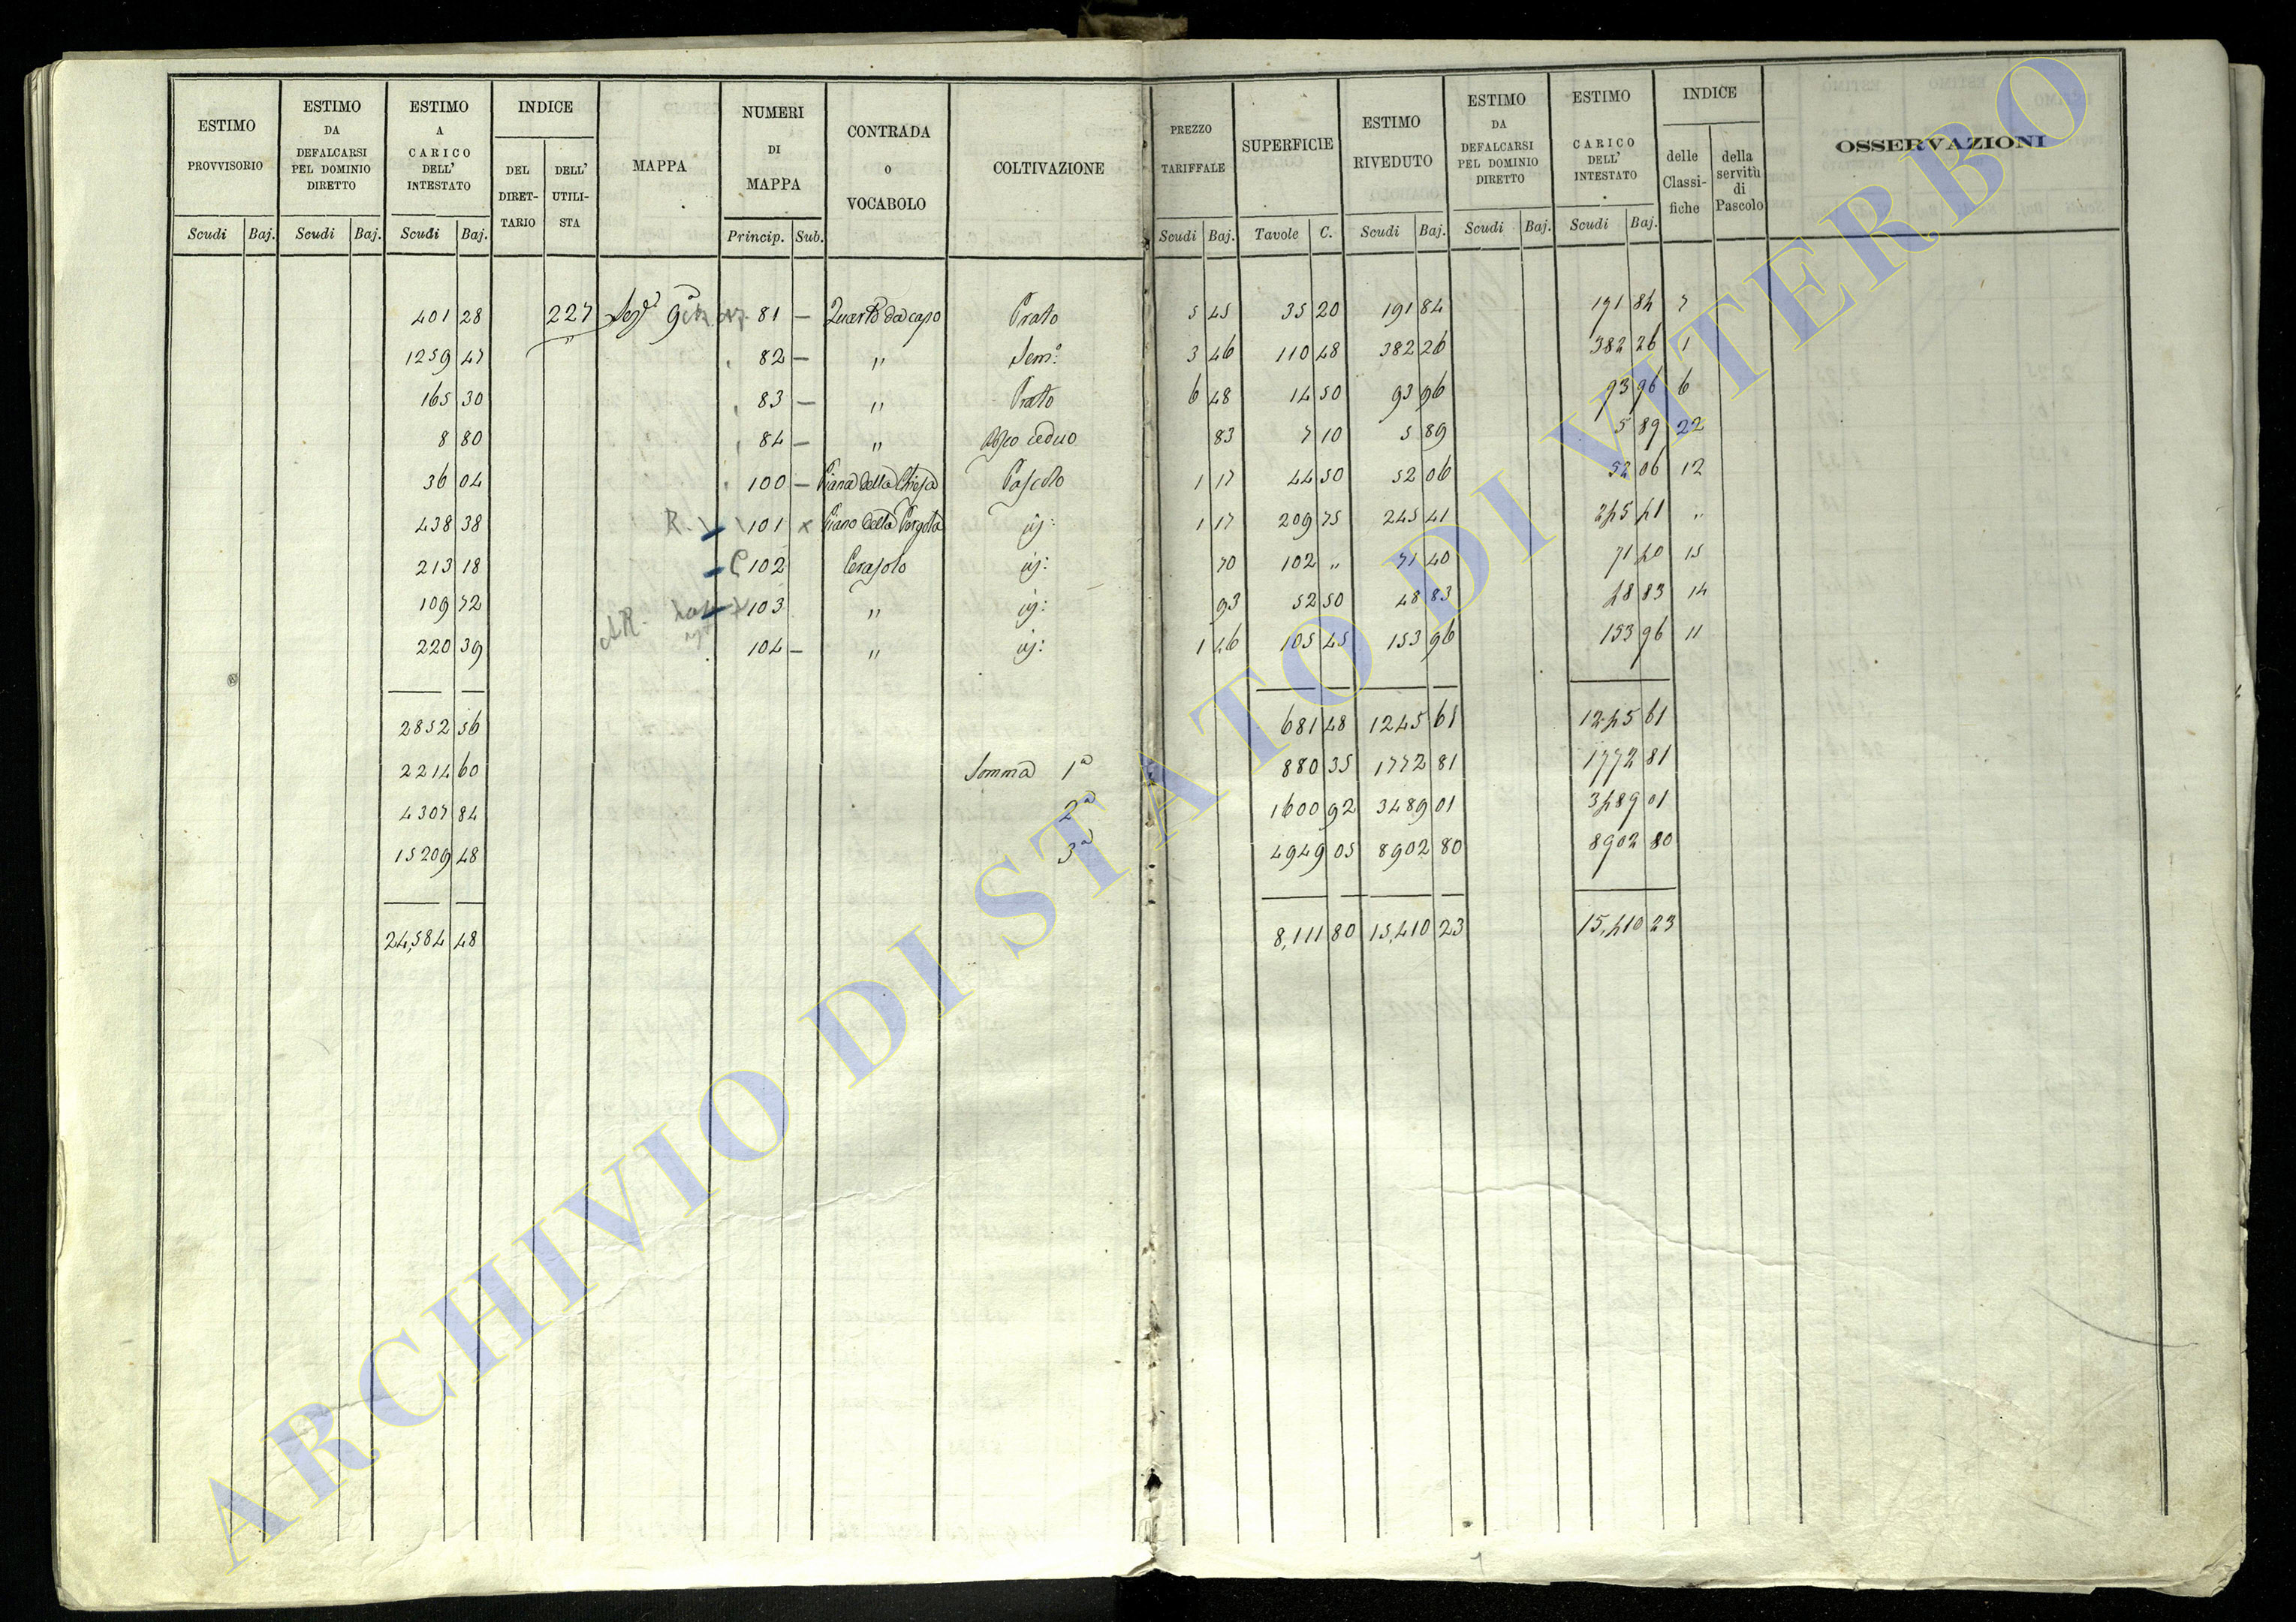 ESTIMO PROVVISORIO | ESTIMO DA DEFALCARSI PEL DOMINIO DIRETTO | ESTIMO A CARICO DELL' INTESTATO | INDICE DEL DIRET-TARIO | DELL' UTILI-STA | MAPPA | NUMERI DI MAPPA | CONTRADA o VOCABOLO | COLTIVAZIONE | PREZZO TARIFFALE | SUPERFICIE | ESTIMO RIVEDUTO | ESTIMO DA DEFALCARSI PEL DOMINIO DIRETTO | ESTIMO CARICO DELL' INTESTATO | INDICE delle Classi-fiche | della servitù di Pascolo | OSSERVAZIONI
Scudi Baj. Scudi Baj. Scudi Baj. Princip. Sub. Scudi Baj. Tavole C. Scudi Baj. Scudi Baj. Scudi Baj.
401 28 227 9ª 81 — Quarto da capo Prato 5 45 35 20 191 84 191 84 7
1259 47 " 82 — " Sem.º 3 46 110 48 382 26 382 26 1
165 30 83 — " Prato 6 48 14 50 93 96 93 96 6
8 80 84 — " Bosco ceduo 83 7 10 5 89 5 89 22
36 04 100 — Piana della Chiesa Pascolo 1 17 44 50 52 06 52 06 12
438 38 R. 101 x Piano della Pergola iij: 1 17 209 75 245 41 245 41 "
213 18 102 Cerasolo iij: 70 102 " 71 40 71 40 15
109 72 103 " iij: 93 52 50 48 83 48 83 14
220 39 AR. 104 — " iij: 1 46 105 45 153 96 153 96 11
2852 56 681 48 1245 61 1245 61
2214 60 Somma 1ª 880 35 1772 81 1772 81
4307 84 2ª 1600 92 3489 01 3489 01
15209 48 3ª 4949 05 8902 80 8902 80
24,584 48 8,111 80 15,410 23 15,410 23
ARCHIVIO DI STATO DI VITERBO